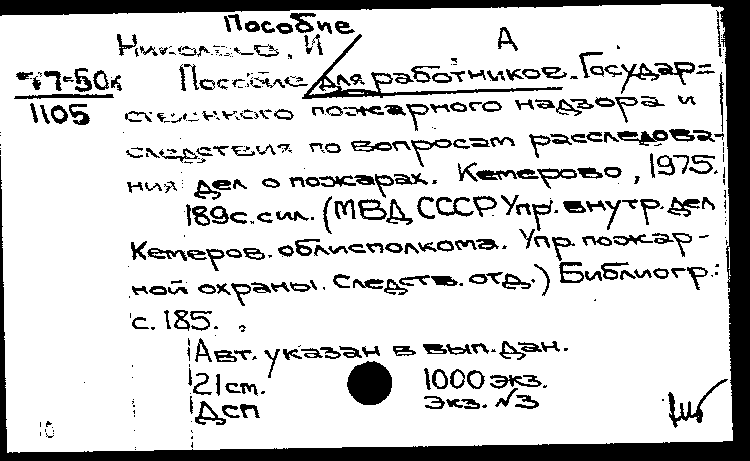 Пособие
Николаев, И А
77-50к Пособие для работников Государ=
1105 ственного пожарного надзора и
следствия по вопросам расследова-
ния дел о пожарах. Кемерово, 1975.
189с. с ил. (МВД СССР Упр. внутр. дел
Кемеров. облисполкома. Упр. пожар-
ной охраны. Следств. отд.) Библиогр.:
с. 185.
Авт. указан в вып. дан.
21 cm. 1000 экз.
ДСП Экз. №3
10